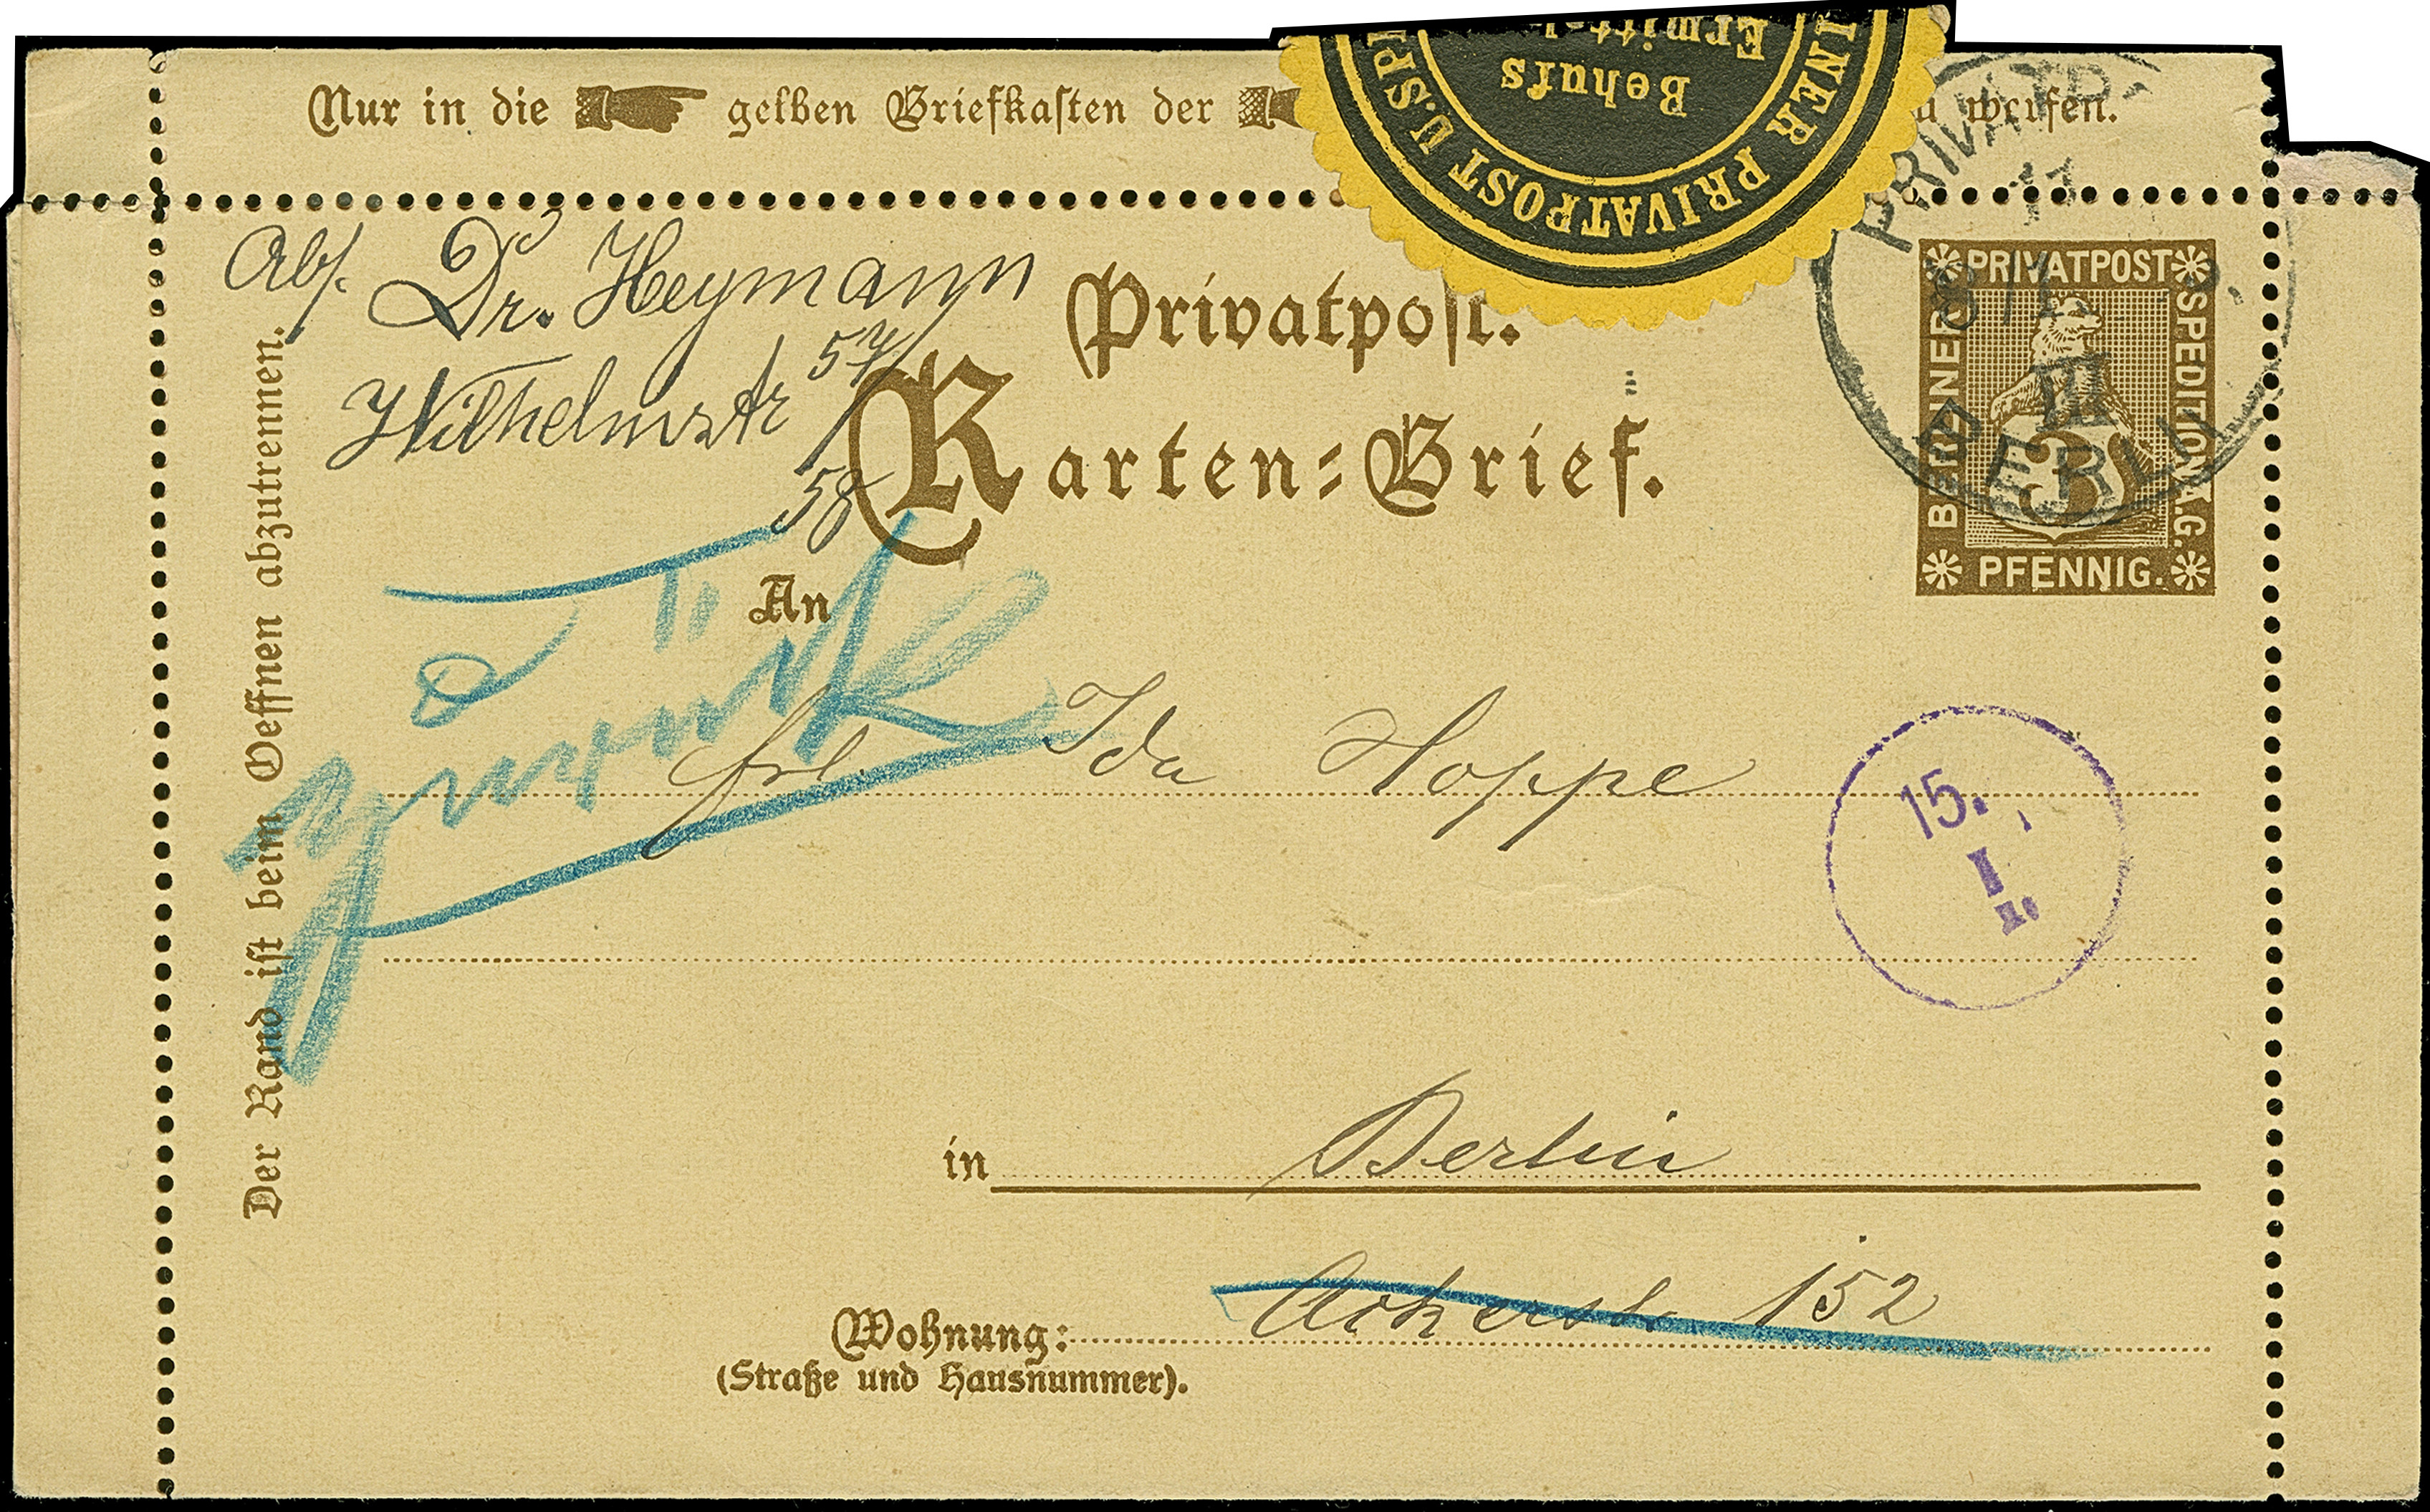 Nur in die gelben Briefkasten der
werfen.
INER PRIVATPOST U. SP
Behufs
PRIVATP.
11
Abs. Dr. Heymann
Wilhelmstr 57/
58
Privatpost.
Karten-Brief.
BERLINER PRIVATPOST SPEDITION A.G.
3
PFENNIG.
BERLIN
III
zurück
An
Frl. Ida Hoppe
15.
I
in Berlin
Wohnung: Ackerstr 152
(Straße und Hausnummer).
Der Rand ist beim Oeffnen abzutrennen.